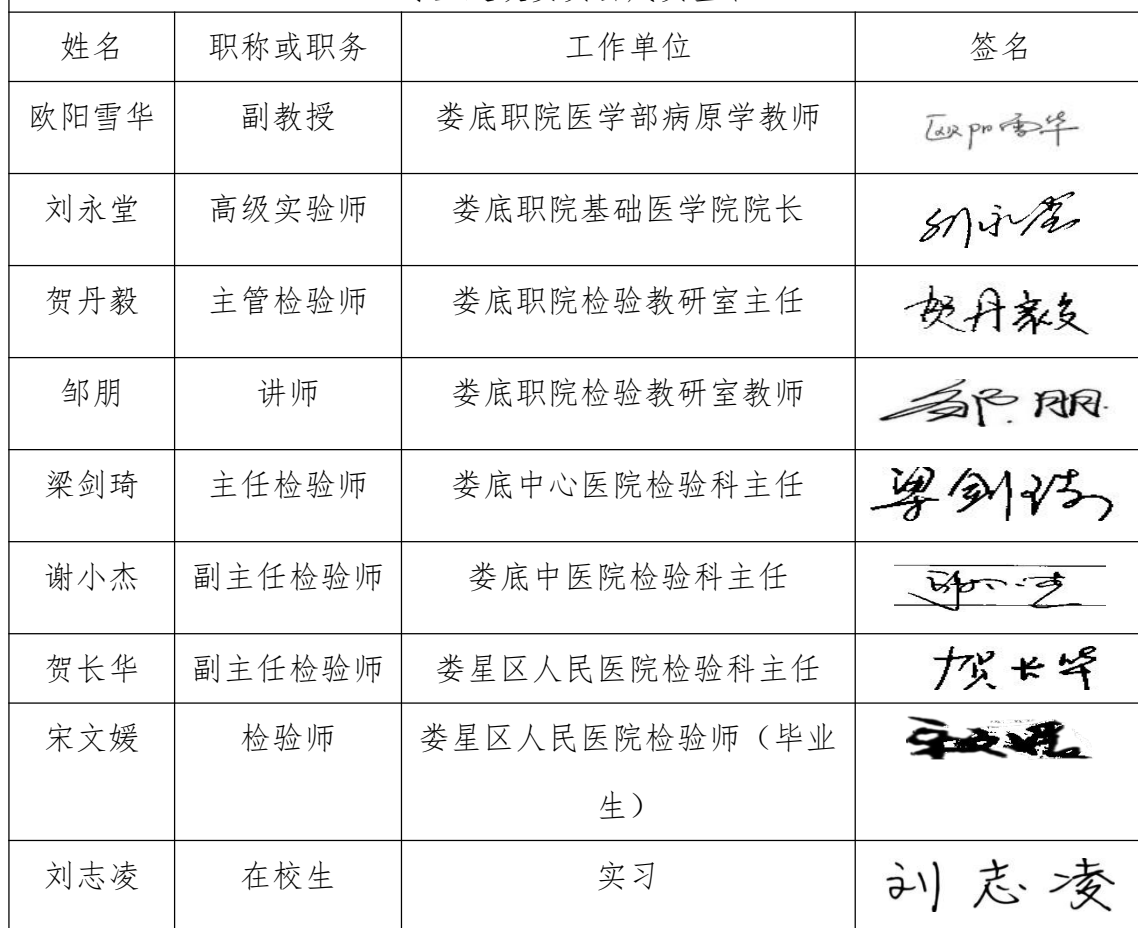 姓名 职称或职务 工作单位 签名
欧阳雪华 副教授 娄底职院医学部病原学教师 欧阳雪华
刘永堂 高级实验师 娄底职院基础医学院院长 刘永堂
贺丹毅 主管检验师 娄底职院检验教研室主任 贺丹毅
邹朋 讲师 娄底职院检验教研室教师 邹朋
梁剑琦 主任检验师 娄底中心医院检验科主任 梁剑琦
谢小杰 副主任检验师 娄底中医院检验科主任 谢小杰
贺长华 副主任检验师 娄星区人民医院检验科主任 贺长华
宋文媛 检验师 娄星区人民医院检验师（毕业 宋文媛
生）
刘志凌 在校生 实习 刘志凌